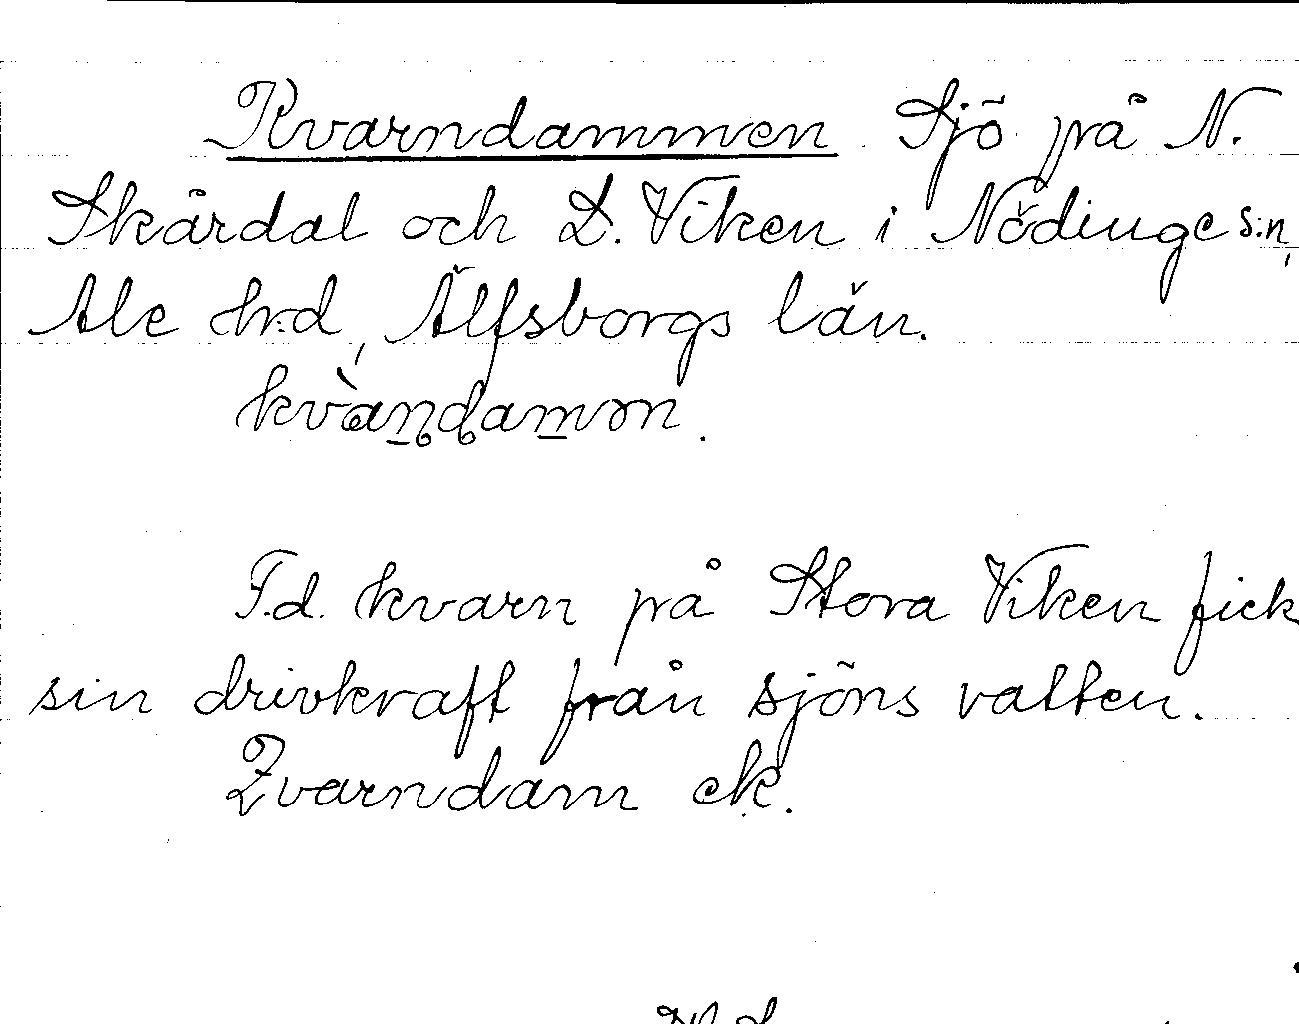 Kvarndammen Sjö på N.
Skårdal och L. Viken i Nödinge s:n,
Ale h:d, Älfsborgs län.
kvàn̲damm̲ən.
F.d. kvarn på Stora Viken fick
sin drivkraft från sjöns vatten.
Qvarndam ek.